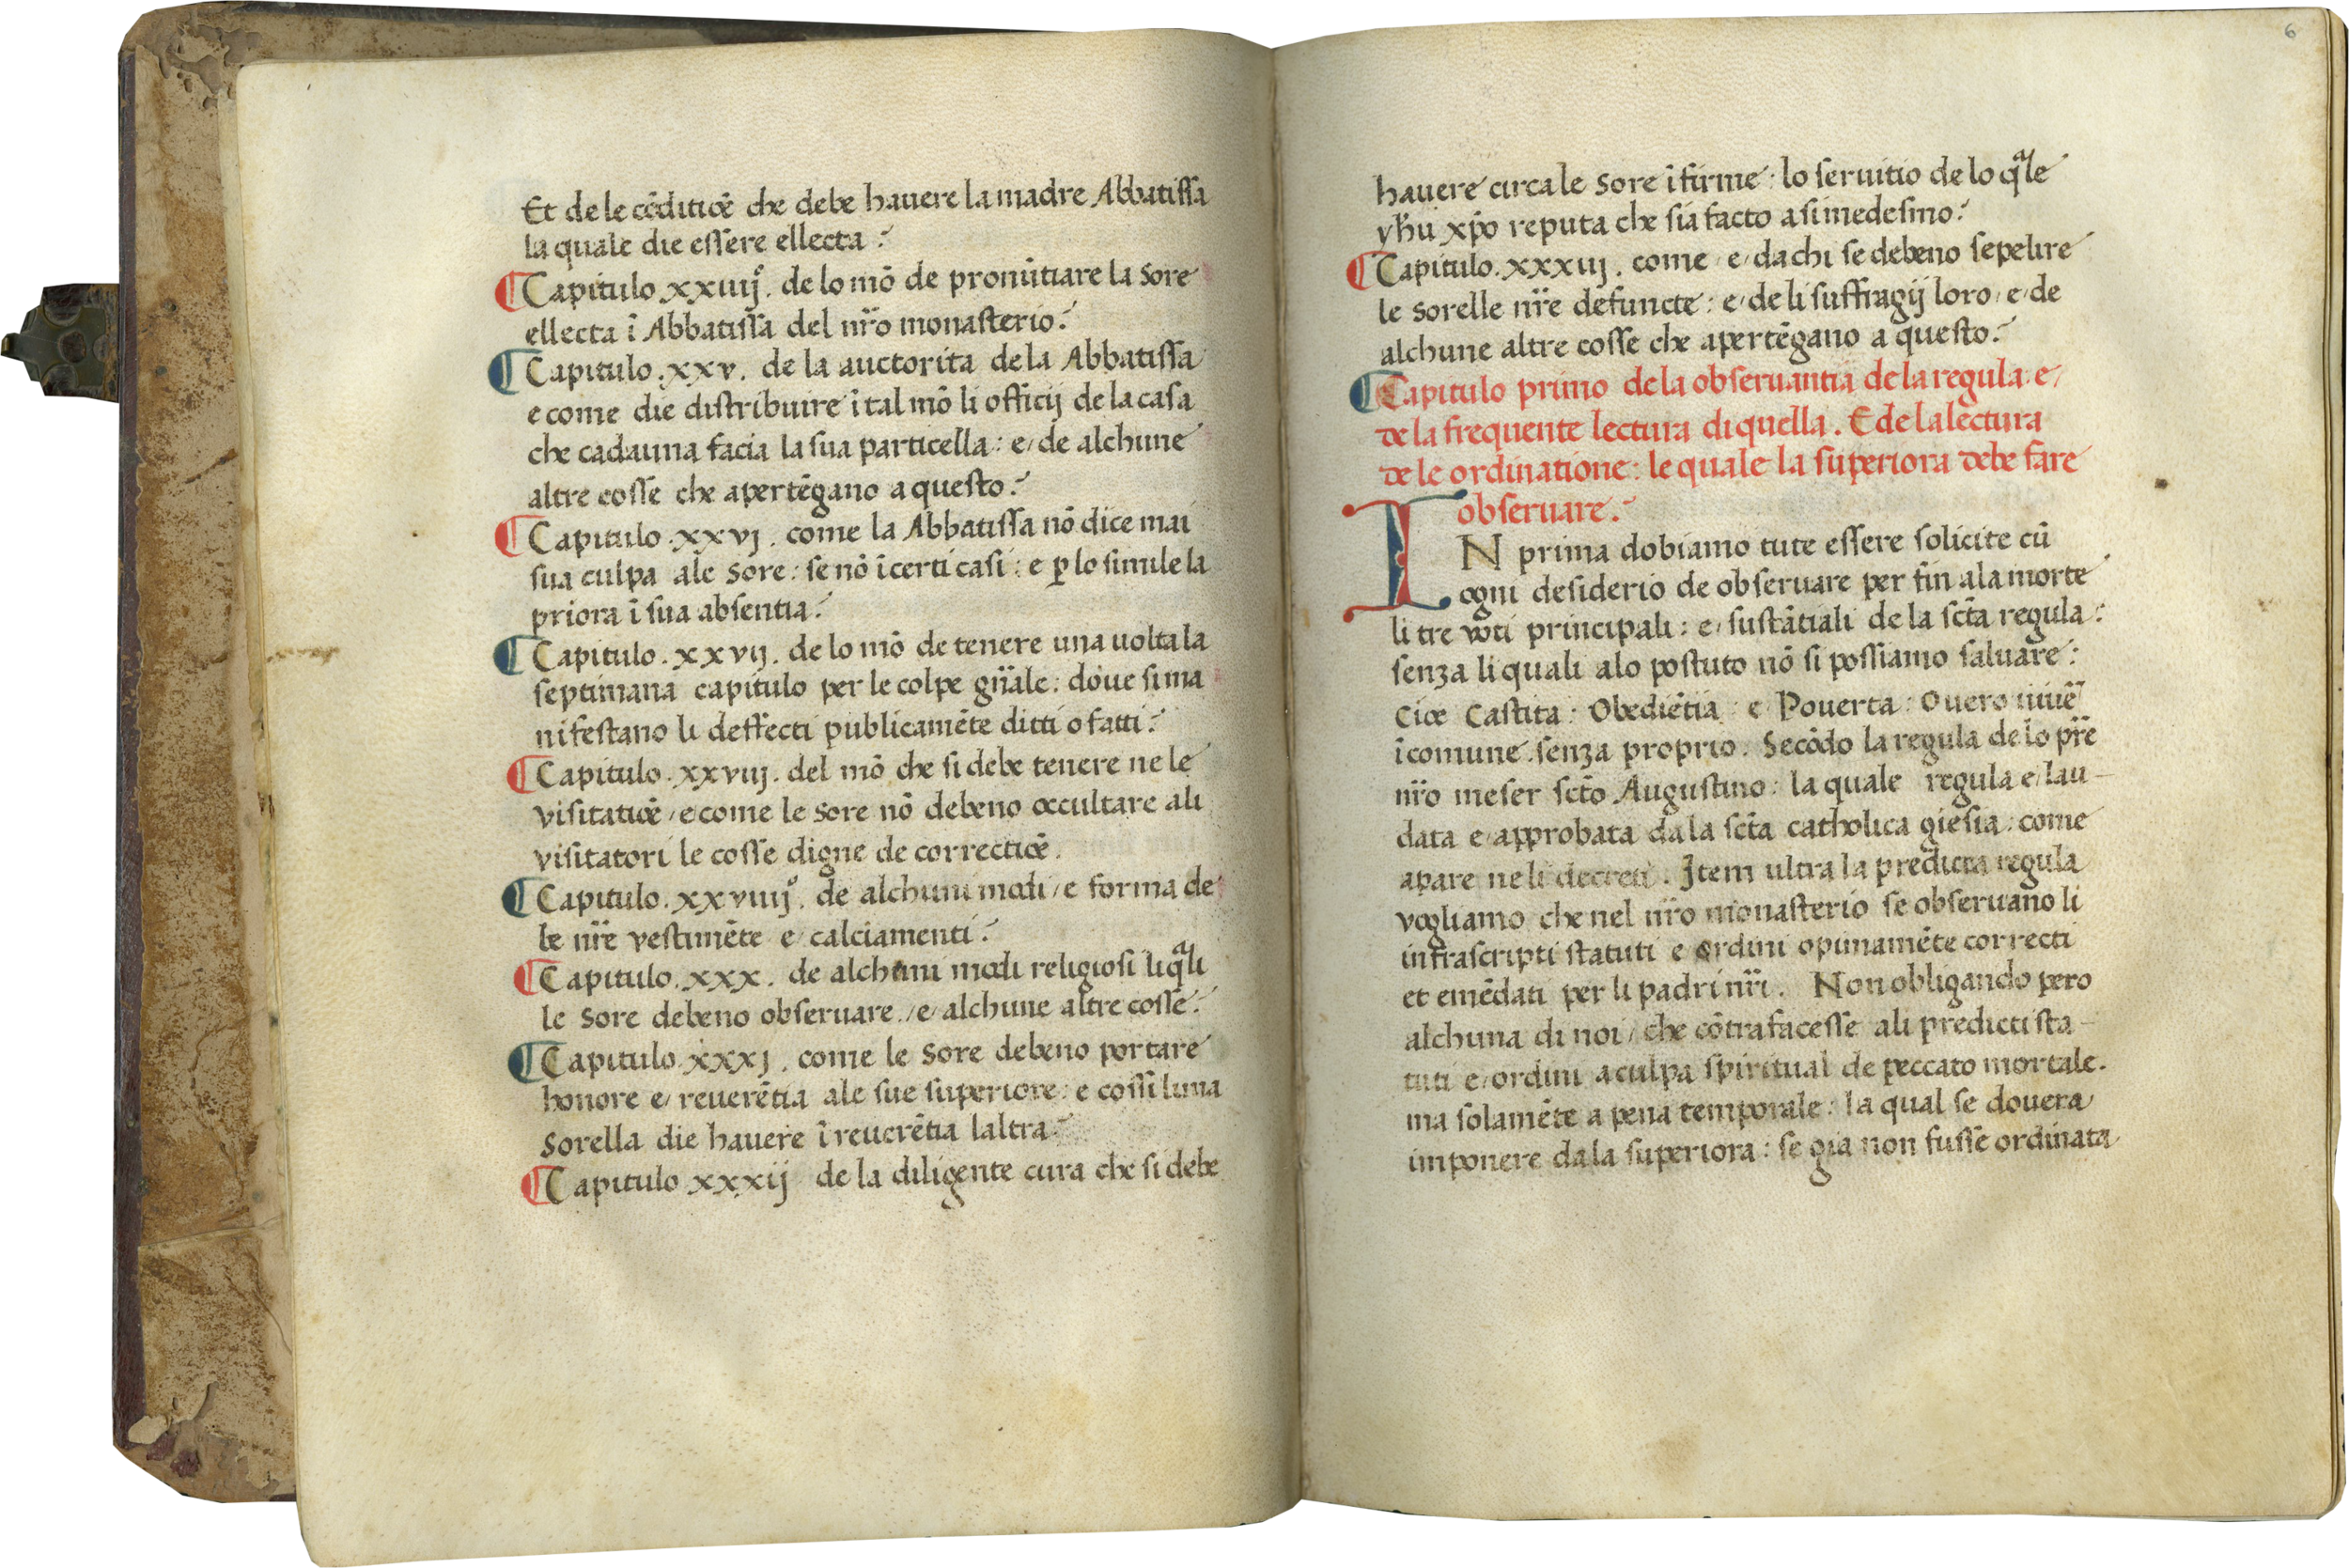 Et de le cōditiōē che debe hauere la madre Abbatiſſa
la quale die eſſere ellecta :
¶ Capitulo .xxiiijº. de lo mō de pronūtiare la Sore
ellecta ī Abbatiſſa del nr̄o monaſterio :
¶ Capitulo .xxv. de la auctorita de la Abbatiſſa
e come die diſtribuire ī tal mō li officij de la caſa
che cadauna facia la ſua particella : e/ de alchune
altre coſſe che apertēgano a queſto :
¶ Capitulo .xxvj. come la Abbatiſſa nō dice mai
ſua culpa ale Sore : ſe nō ī certi caſi : e ꝑ lo ſimile la
priora ī ſua abſentia :
¶ Capitulo .xxvij. de lo mō de tenere una uolta la
ſeptimana capitulo per le colpe gn̄ale : doue ſi ma
nifeſtano li deffecti publicamēte ditti o fatti :
¶ Capitulo .xxviij. del mō che ſi debe tenere ne le
viſitatiōē / e come le Sore nō debeno occultare ali
viſitatori le coſſe digne de correctiōē.
¶ Capitulo .xxviiijº. de alchuni modi / e forma de
le nr̄e veſtimēte e/ calciamenti :
¶ Capitulo .xxx. de alchuni modi religioſi li qᵃli
le Sore debeno obſeruare. /e/ alchune altre coſſe :
¶ Capitulo .xxxj. come le Sore debeno portare
honore e/ reuerētia ale ſue ſuperiore : e coſſi luna
Sorella die hauere ī reuerētia laltra :
¶ Capitulo xxxij de la diligente cura che ſi debe
6
hauere circa le Sore īfirme : lo ſeruitio de lo qᵃle
yhū xp̄o reputa che ſia facto a ſi medeſmo :
¶ Capitulo .xxxiij. come / e/ da chi ſe debeno ſepelire
le Sorelle nr̄e defuncte : e/ de li ſuffragij loro / e/ de
alchune altre coſſe che apertēgano a queſto :
¶ Capitulo primo de la obſeruantia de la regula : e/
de la frequente lectura di quella . E de la lectura
de le ordinatione : le quale la ſuperiora debe fare
obſeruare :
IN prima dobiamo tute eſſere ſolicite cū
ogni deſiderio de obſeruare per fin ala morte
li tre voti principali : e/ ſuſtātiali de la ſct̄a regula :
ſenza li quali alo poſtuto nō ſi poſſiamo ſaluare :
Cioe Caſtita : Obediētia : e Pouerta : Ouero uiuē
ī comune . ſenza proprio . Secōdo la regula de lo pr̄e
nr̄o meſer ſct̄o Auguſtino : la quale regula e/ lau –
data e/ approbata da la ſct̄a catholica gieſia : come
apare ne li decreti . Item ultra la predicta regula
vogliamo che nel nr̄o monaſterio ſe obſeruano li
infraſcripti ſtatuti e ordini opinamēte correcti
et emēdati per li padri nr̄i . Non obligando pero
alchuna di noi / che cōtrafaceſſe ali predicti ſta –
tuti e/ ordini a culpa ſpiritual de peccato mortale.
ma ſolamēte a pena temporale : la qual ſe douera
imponere da la ſuperiora : ſe gia non fuſſe ordinata